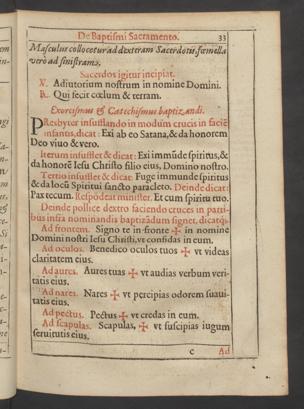 De Baptismi Sacramento. 33
Masculus collocetur ad dexteram Sacerdotis, fœmella
verò ad sinistram.
Sacerdos igitur incipiat.
V. Adiutorium nostrum in nomine Domini.
R. Qui fecit cœlum & terram.
Exorcismus & Catechismus baptizandi.
PResbyter insufflando in modum crucis in faciē
infantis, dicat: Exi ab eo Satana, & da honorem
Deo viuo & vero.
Iterum insufflet & dicat: Exi immūde spiritus, &
da honorē Iesu Christo filio eius, Domino nostro.
Tertio insufflet & dicat: Fuge immunde spiritus
& da locū Spiritui sancto paracleto. Deinde dicat:
Pax tecum. Respōdeat minister. Et cum spiritu tuo.
Deinde pollice dextro faciendo cruces in parti-
bus infra nominandis baptizādum signet, dicatq;
Ad frontem. Signo te in fronte ✠ in nomine
Domini nostri Iesu Christi, vt confidas in eum.
Ad oculos. Benedico oculos tuos ✠ vt videas
claritatem eius.
Ad aures. Aures tuas ✠ vt audias verbum veri-
tatis eius.
Ad nares. Nares ✠ vt percipias odorem suaui-
tatis eius.
Ad pectus. Pectus ✠ vt credas in eum.
Ad scapulas. Scapulas, ✠ vt suscipias iugum
seruitutis eius.
c Ad